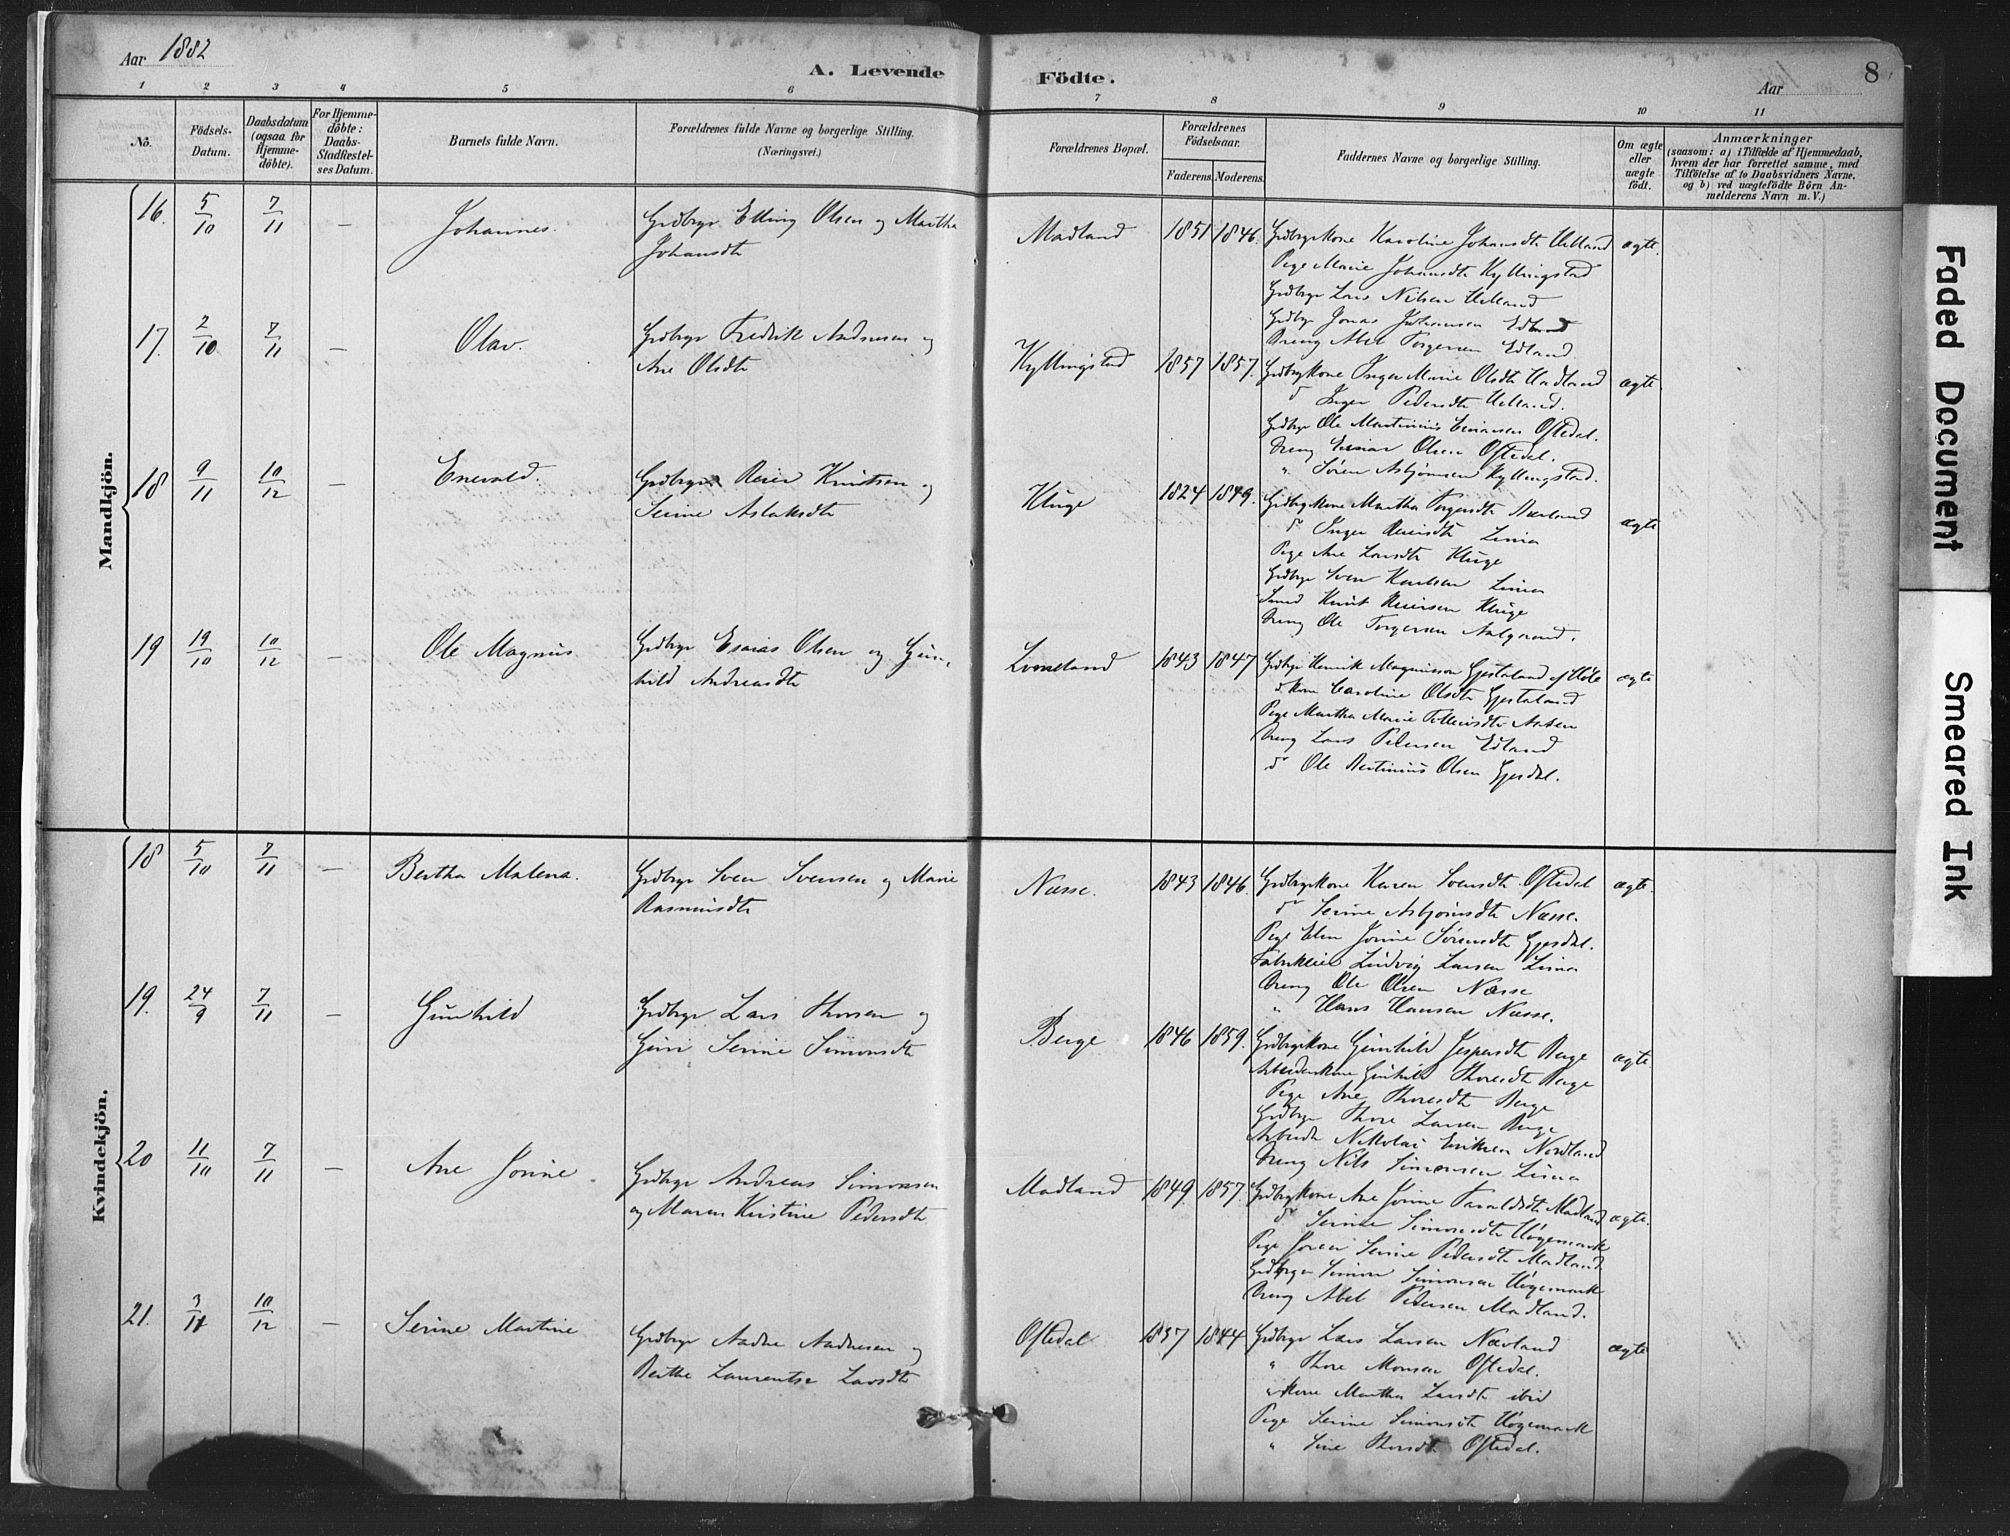 Aar 1882
A. Levende Födte.
Aar
8
1 2 3 4 5 6 7 8 9 10 11
No.
Födsels-Datum.
Daabsdatum (ogsaa for Hjemmedöbte).
For Hjemmedöbte: Daabs-Stadfæstelses Datum.
Barnets fulde Navn.
Forældrenes fulde Navne og borgerlige Stilling.
(Næringsvei.)
Forældrenes Bopæl.
Forældrenes Födselsaar.
Faderens. Moderens.
Faddernes Navne og borgerlige Stilling.
Om ægte eller uægte födt.
Anmærkninger
(saasom: a) i Tilfælde af Hjemmedaab,
hvem der har forrettet samme, med
Tilföielse af to Daabsvidners Navne.
og b) ved uægtefödte Börn An-
melderens Navn m. V.)
Mandkjön.
16. 5/10 7/11 — Johannes.
Grdbrgr Elling Olsen og Martha
Johansdtr
Madland 1851 1846.
Grdbrgrkone Karoline Johansdtr Uelland
Pige Marie Johansdtr Kyllingstad
Grdbrgr Lars Nilsen Uelland
Grdbrgr Jonas Johansen Edland
Dreng Abel Torgersen Edland
ægte.
17. 2/10 7/11 — Olav.
Grdbrgr Fredrik Andresen og
Ane Olsdtr
Kyllingstad 1857 1857.
Grdbrgrkone Inger Marie Olsdtr Madland
do Inger Pedersdtr Uelland.
Grdbrgr Ole Martinius Esaiasen Oftedal.
Dreng Esaias Olsen Oftedal.
" Sören Asbjörnsen Kyllingstad.
ægte
18 9/11 10/12 — Enevald.
Grdbrgr Reier Knutsen og
Serine Aslaksdtr
Kluge 1824 1849.
Grdbrgrkone Martha Torgersdtr Nærland
do Inger Reiersdtr Lima
Pige Ane Larsdtr Kluge
Grdbrgr Sven Karlsen Lima
Smed Knut Reiersen Kluge
Dreng Ole Torgersen Aalgaard.
ægte
19 19/10 10/12 — Ole Magnus
Grdbrgr Esaias Olsen og Gun-
hild Andreasdtr
Limeland 1843 1847
Grdbrgr Henrik Magnusson Gjestaland af Höle
do kone Caroline Olsdtr Gjestaland
Pige Martha Marie Tollevsdtr Aasen
Dreng Lars Pedersen Edland
do Ole Bertinius Olsen Gjesdal.
ægte
Kvindekjön.
18 5/10 7/11 — Bertha Malena.
Grdbrgr Sven Svensen og Marie
Rasmusdtr
Næsse. 1843 1846
Grdbrgrkone Karen Svensdtr Oftedal
do Serine Asbjörnsdtr Næsse.
Pige Elen Jonine Sörensdtr Gjesdal.
Fabrikeier Ludvig Larsen Lima
Dreng Ole Olsen Næsse
" Hans Hansen Næsse.
ægte.
19. 24/9 7/11 — Gunhild
Grdbrgr Lars Thorsen og
Guri Serine Simonsdtr
Berge 1846 1859.
Grdbrgrkone Gunhild Jespersdtr Berge
Arbeiderkone Gunhild Thoresdtr Berge
Pige Ane Thoresdtr Berge
Grdbrgr Thore Larsen Berge
Arbeider Nikolai Eriksen Nordland
Dreng Nils Simonsen Lima
ægte.
20 11/10 7/11 — Ane Jonine.
Grdbrgr Andreas Simonsen
og Maren Kristine Pedersdtr
Madland 1849 1857
Grdbrgrkone Ane Jonine Taraldsdtr Madland
do Serine Simonsdtr Högemark
Pige Joren Serine Pedersdtr Madland.
Grdbrgr Simon Simonsen Högemark
Dreng Abel Pedersen Madland.
ægte.
21. 3/11 10/12 — Serine Martine
Grdbrgr Aadne Aadnesen og
Berthe Laurentse Larsdtr
Oftedal 1837 1844
Grdbrgr Lars Larsen Nævland
" Thore Monsen Oftedal.
" kone Martha Larsdtr ibid
Pige Serine Simonsdtr Högemark
" Sine Thorsdtr Oftedal.
ægte
Faded Document
Smeared Ink